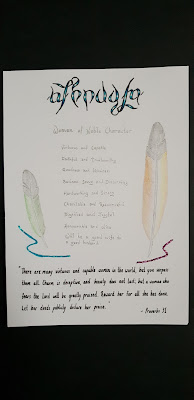 Woman of Noble Character
Virtuous and Capable
Reliable and Trustworthy
and
Business Savvy and Discerning
Hardworking and Strong
Charitable and
Dignified and Joyful
Will be a good wife to
a good husband
"There are many virtuous and capable women in the world, but you surpass
them all. Charm is deceptive, and beauty does not last; but a woman who
fears the Lord will be greatly praised. Reward her for all she has done.
Let her deeds publicly declare her praise."
- Proverbs 31